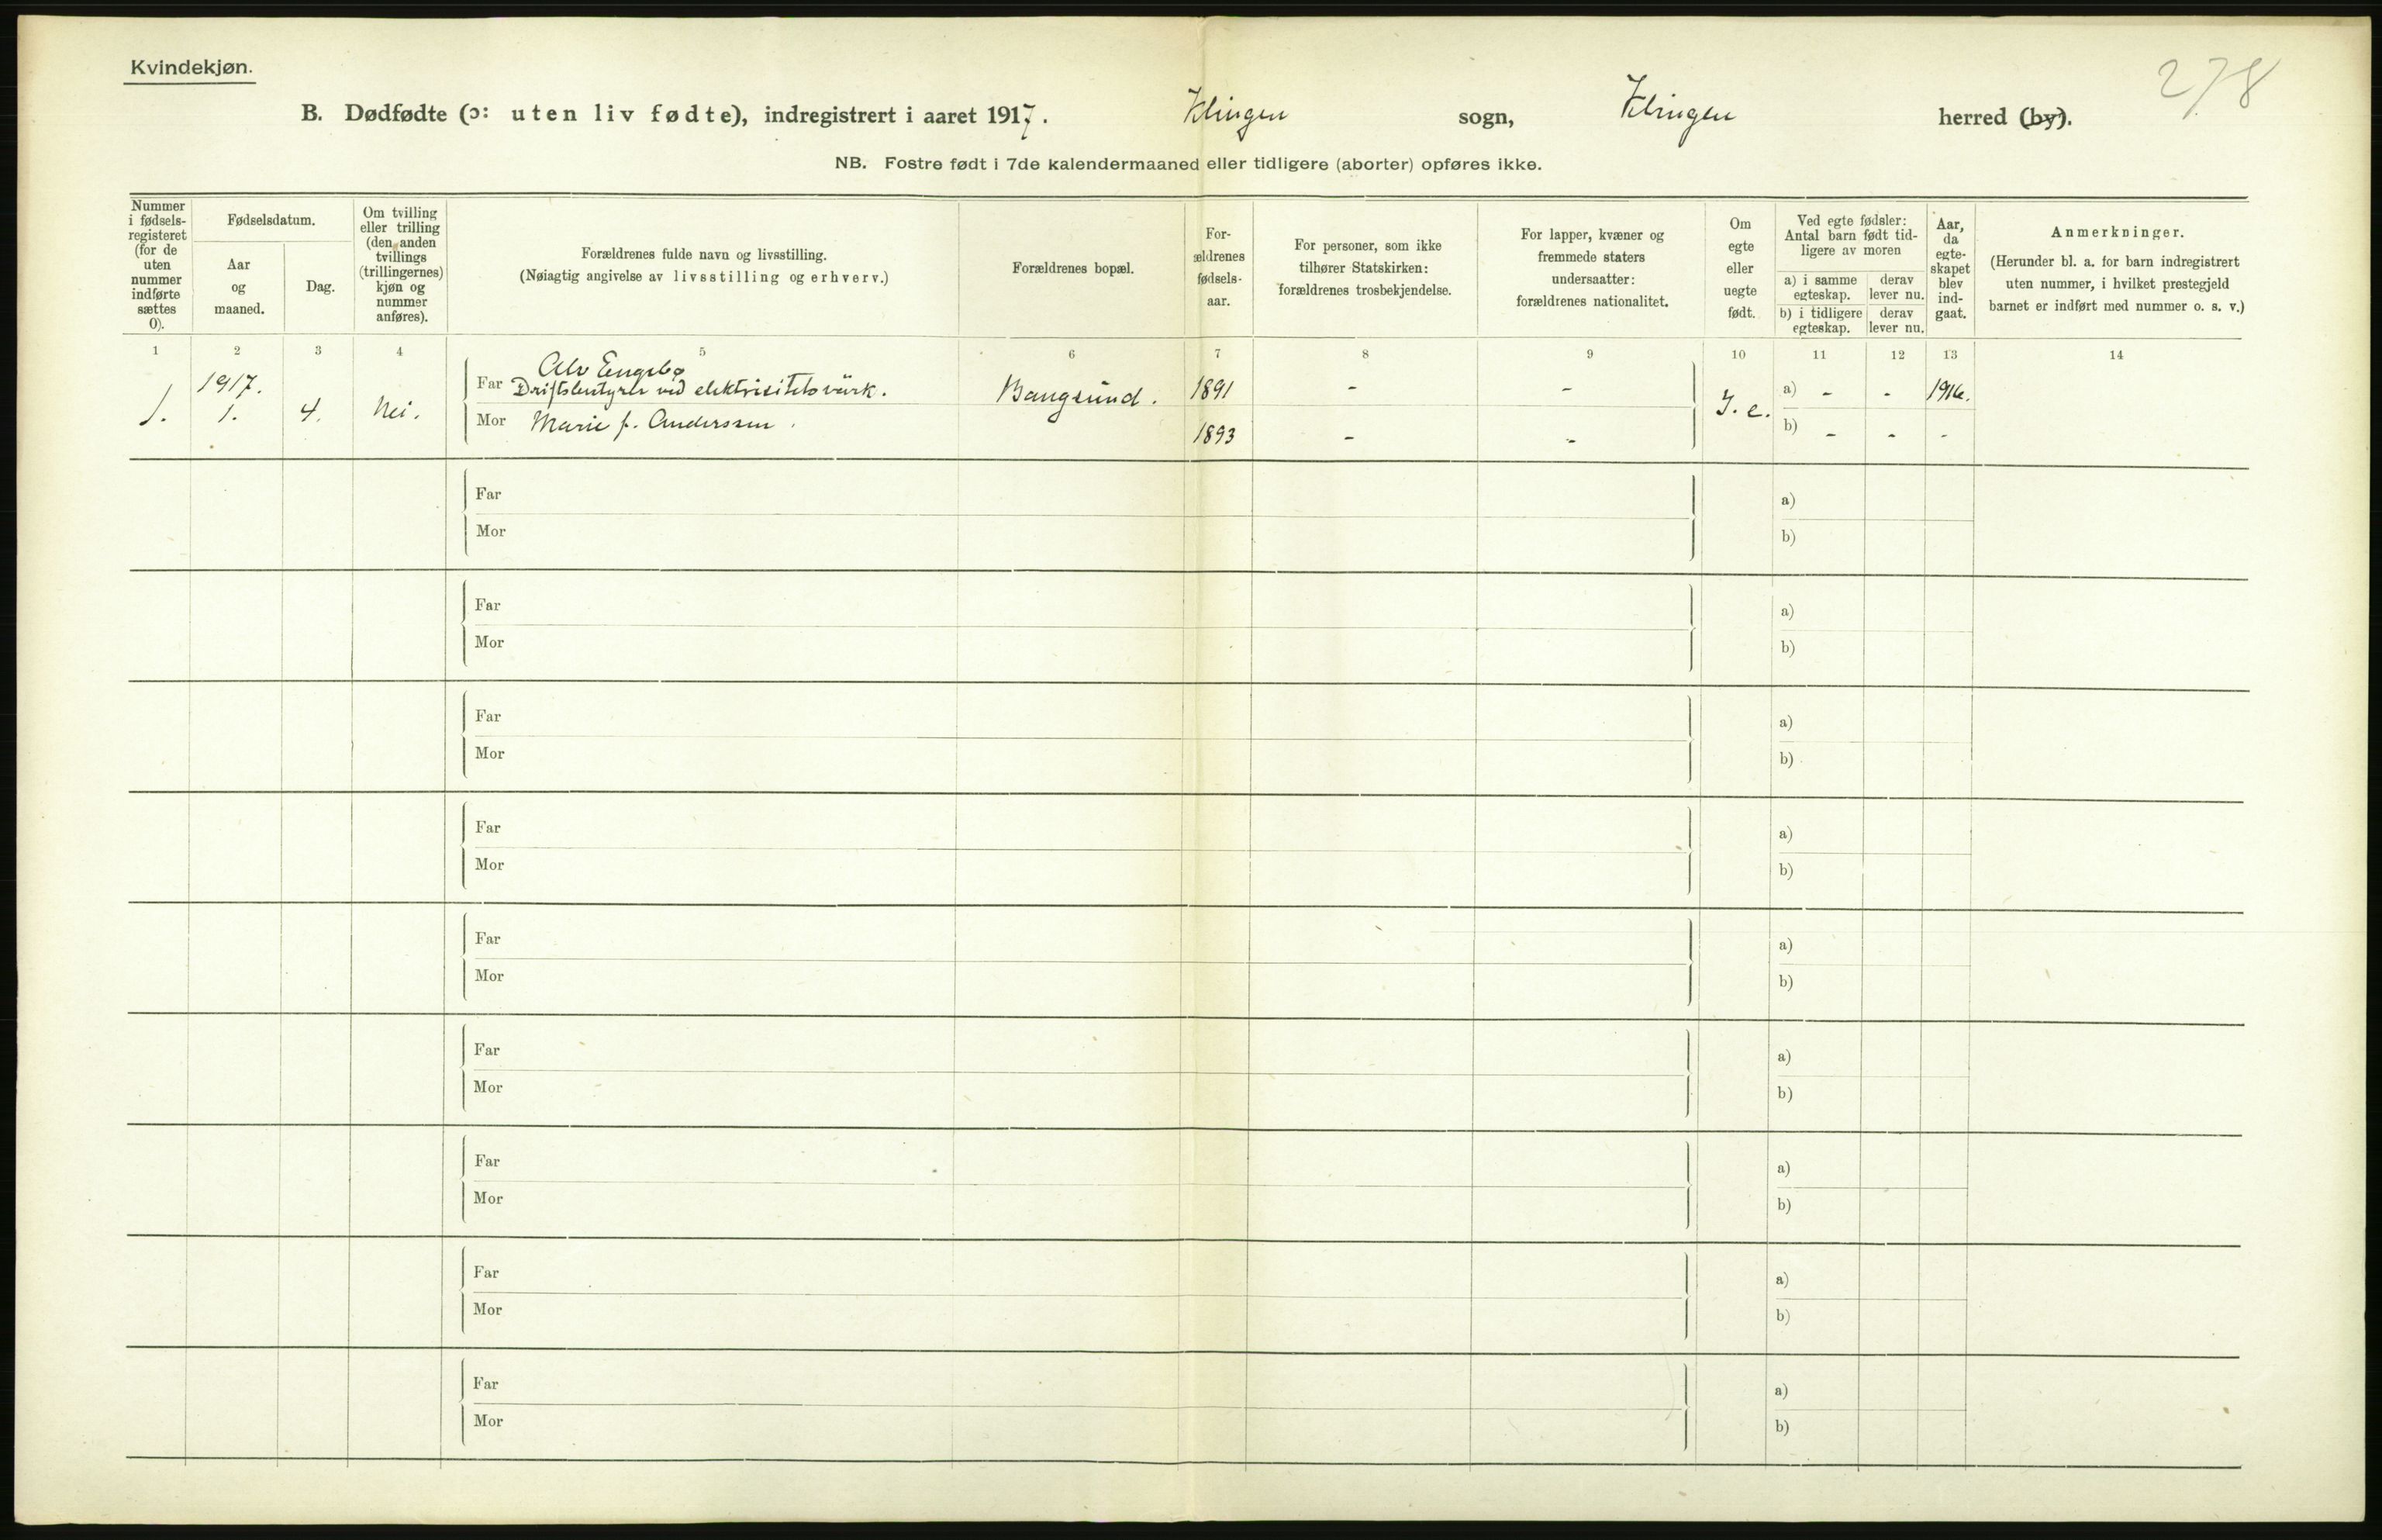 Kvindekjøn.
278
B. Dødfødte (ɔ: uten liv fødte), indregistrert i aaret 1917. Klingen sogn, Klingen herred (by).
NB. Fostre født i 7de kalendermaaned eller tidligere (aborter) opføres ikke.
Nummer
i fødsels-
registeret
(for de
uten
nummer
indførte
sættes
0).
Fødselsdatum.
Aar
og
maaned.
Dag.
Om tvilling
eller trilling
(den anden
tvillings
(trillingernes)
kjøn og
nummer
anføres).
Forældrenes fulde navn og livsstilling.
(Nøiagtig angivelse av livsstilling og erhverv.)
Forældrenes bopæl.
For-
ældrenes
fødsels-
aar.
For personer, som ikke
tilhører Statskirken:
forældrenes trosbekjendelse.
For lapper, kvæner og
fremmede staters
undersaatter:
forældrenes nationalitet.
Om
egte
eller
uegte
født.
Ved egte fødsler:
Antal barn født tid-
ligere av moren
a) i samme
egteskap.
derav
lever nu.
b) i tidligere
egteskap.
derav
lever nu.
Aar,
da
egte-
skapet
blev
ind-
gaat.
Anmerkninger.
(Herunder bl. a. for barn indregistrert
uten nummer, i hvilket prestegjeld
barnet er indført med nummer o. s. v.)
1 2 3 4 5 6 7 8 9 10 11 12 13 14
Alv Engsbo
1917. Far Driftsbestyrer ved elektrisitetsvärk. Bangsund. 1891 - - a) - - 1916.
1. 1. 4. Nei. Mor Marie f. Anderssen. 1893 - - I. e. b) - - -
Far a)
Mor b)
Far a)
Mor b)
Far a)
Mor b)
Far a)
Mor b)
Far a)
Mor b)
Far a)
Mor b)
Far a)
Mor b)
Far a)
Mor b)
Far a)
Mor b)